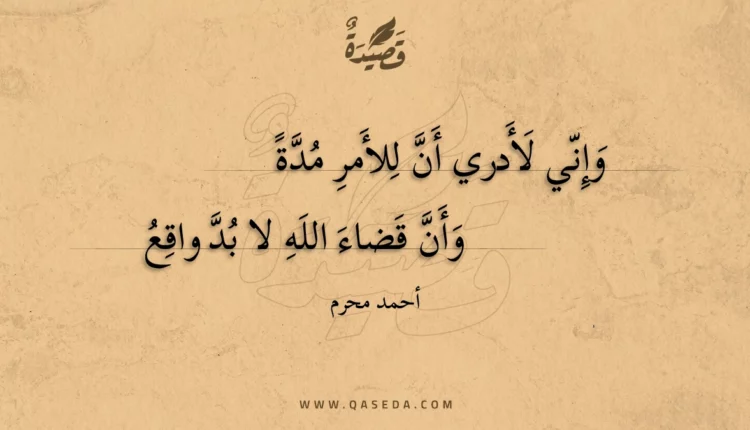 قَصِيْدَةٌ
وَإِنّي لَأَدري أَنَّ لِلأَمرِ مُدَّةً
وَأَنَّ قَضاءَ اللَهِ لا بُدَّ واقِعُ
أحمد محرم
WWW.QASEDA.COM